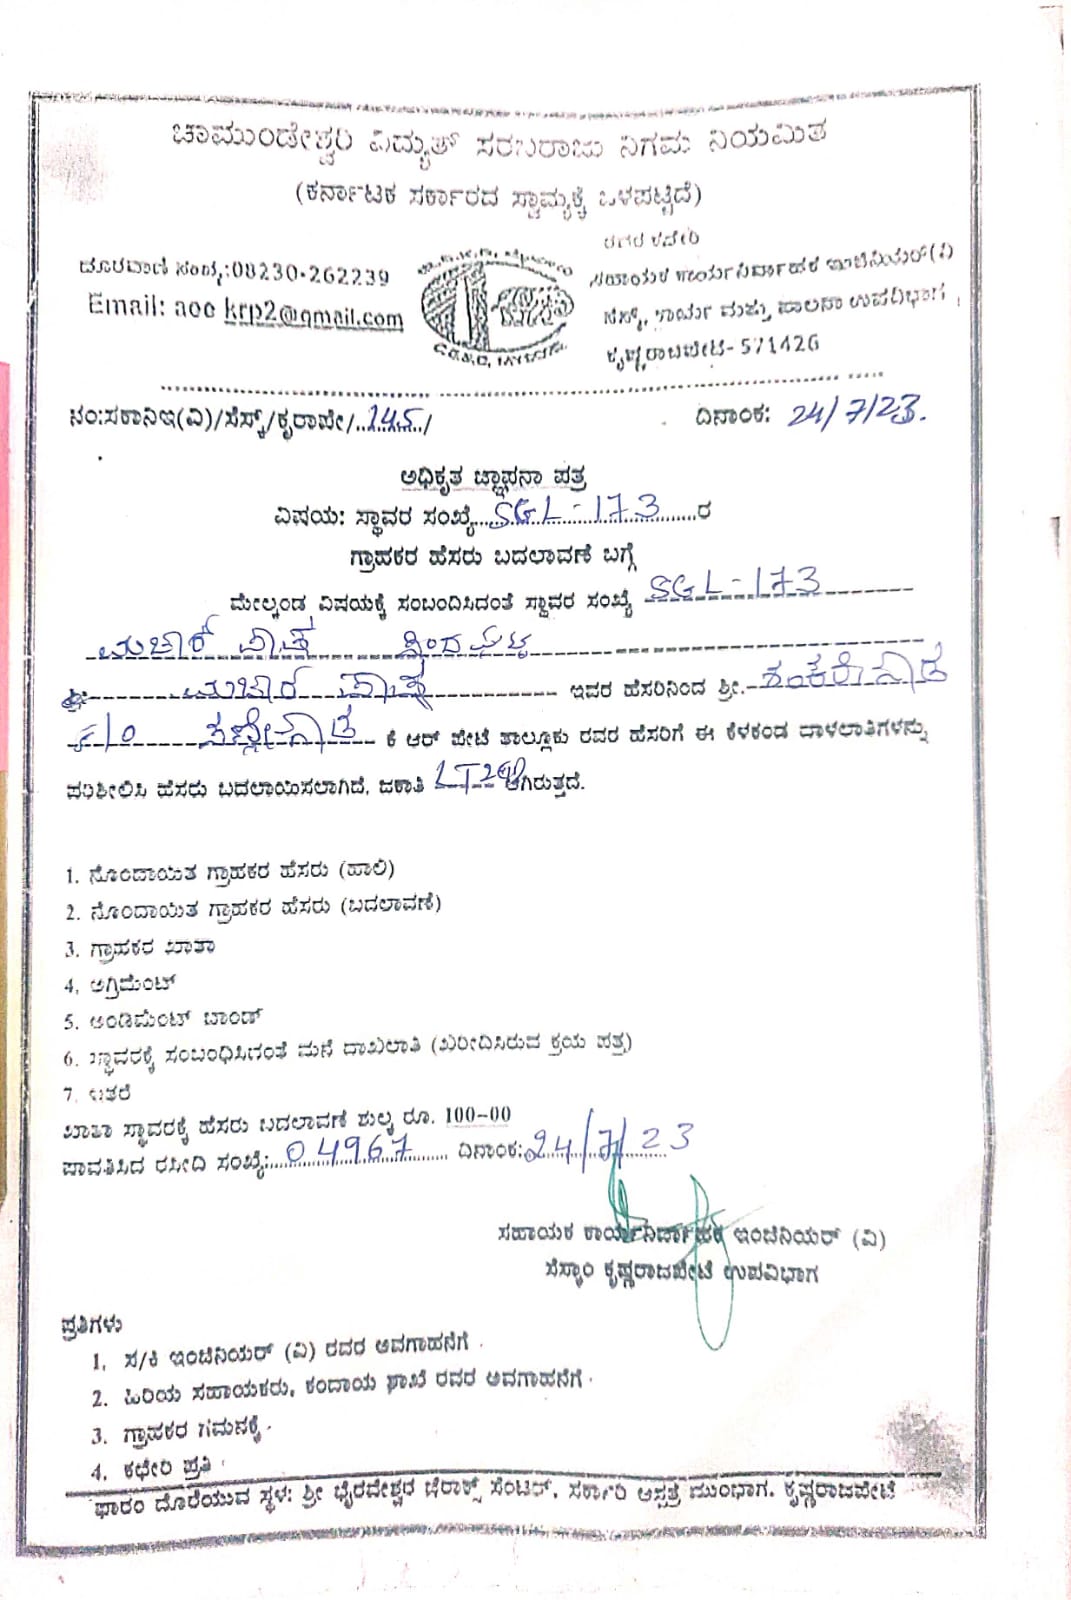 ಚಾಮುಂಡೇಶ್ವರಿ ವಿದ್ಯುತ್ ಸರಬರಾಜು ನಿಗಮ ನಿಯಮಿತ
(ಕರ್ನಾಟಕ ಸರ್ಕಾರದ ಸ್ವಾಮ್ಯಕ್ಕೆ ಒಳಪಟ್ಟಿದೆ)
ದೂರವಾಣಿ ಸಂಖ್ಯೆ:08230-262239
Email: aee krp2@gmail.com
ರವರ ಕಛೇರಿ
ಸಹಾಯಕ ಕಾರ್ಯನಿರ್ವಾಹಕ ಇಂಜಿನಿಯರ್(ವಿ)
ಸೆಸ್ಕ್, ಕಾರ್ಯ ಮತ್ತು ಪಾಲನಾ ಉಪವಿಭಾಗ,
ಕೃಷ್ಣರಾಜಪೇಟೆ-571426
ನಂ:ಸಕಾನಿಇ(ವಿ)/ಸೆಸ್ಕ್/ಕೃರಾಪೇ/.245./
ದಿನಾಂಕ: 24/7/23.
ಅಧಿಕೃತ ಜ್ಞಾಪನಾ ಪತ್ರ
ವಿಷಯ: ಸ್ಥಾವರ ಸಂಖ್ಯೆ SGL-173 ರ
ಗ್ರಾಹಕರ ಹೆಸರು ಬದಲಾವಣೆ ಬಗ್ಗೆ
ಮೇಲ್ಕಂಡ ವಿಷಯಕ್ಕೆ ಸಂಬಂದಿಸಿದಂತೆ ಸ್ಥಾವರ ಸಂಖ್ಯೆ SGL-173
ಶ್ರೀ ಇವರ ಹೆಸರಿನಿಂದ ಶ್ರೀ. ಶಂಕರೇಗೌಡ
ಕೆ ಆರ್ ಪೇಟೆ ತಾಲ್ಲೂಕು ರವರ ಹೆಸರಿಗೆ ಈ ಕೆಳಕಂಡ ದಾಖಲಾತಿಗಳನ್ನು
ಪರಿಶೀಲಿಸಿ ಹೆಸರು ಬದಲಾಯಿಸಲಾಗಿದೆ, ಜಕಾತಿ ಆಗಿರುತ್ತದೆ.
1. ನೊಂದಾಯಿತ ಗ್ರಾಹಕರ ಹೆಸರು (ಹಾಲಿ)
2. ನೊಂದಾಯಿತ ಗ್ರಾಹಕರ ಹೆಸರು (ಬದಲಾವಣೆ)
3. ಗ್ರಾಹಕರ ಖಾತಾ
4. ಅಗ್ರಿಮೆಂಟ್
5. ಇಂಡಿಮೆಂಟ್ ಬಾಂಡ್
6. ಸ್ಥಾವರಕ್ಕೆ ಸಂಬಂಧಿಸಿದಂತೆ ಮನೆ ದಾಖಲಾತಿ (ಖರೀದಿಸಿರುವ ಕ್ರಯ ಪತ್ರ)
7. ಇತರೆ
ಖಾತಾ ಸ್ಥಾವರಕ್ಕೆ ಹೆಸರು ಬದಲಾವಣೆ ಶುಲ್ಕ ರೂ. 100-00
ಪಾವತಿಸಿದ ರಸೀದಿ ಸಂಖ್ಯೆ: 04967 ದಿನಾಂಕ: 24/7/23
ಸಹಾಯಕ ಕಾರ್ಯನಿರ್ವಾಹಕ ಇಂಜಿನಿಯರ್ (ವಿ)
ಸೆಸ್ಕಾಂ ಕೃಷ್ಣರಾಜಪೇಟೆ ಉಪವಿಭಾಗ
ಪ್ರತಿಗಳು
1. ಸ/ಕಿ ಇಂಜಿನಿಯರ್ (ವಿ) ರವರ ಅವಗಾಹನೆಗೆ.
2. ಹಿರಿಯ ಸಹಾಯಕರು, ಕಂದಾಯ ಶಾಖೆ ರವರ ಅವಗಾಹನೆಗೆ.
3. ಗ್ರಾಹಕರ ಗಮನಕ್ಕೆ.
4. ಕಛೇರಿ ಪ್ರತಿ
ಫಾರಂ ದೊರೆಯುವ ಸ್ಥಳ: ಶ್ರೀ ಭೈರವೇಶ್ವರ ಜೆರಾಕ್ಸ್ ಸೆಂಟರ್, ಸರ್ಕಾರಿ ಆಸ್ಪತ್ರೆ ಮುಂಭಾಗ, ಕೃಷ್ಣರಾಜಪೇಟೆ